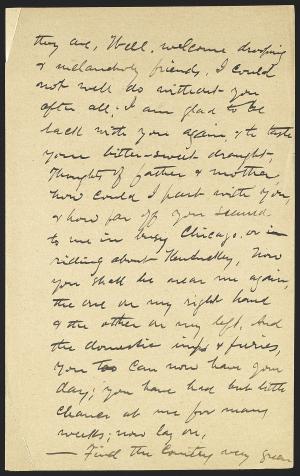 they are, Well, welcome drooping
& melancholy friends, I could
not well do without you
after all; I am glad to be
back with you again, & to taste
your bitter-sweet draught,
Thoughts of father & mother,
how could I part with you,
& how far off you seemed
to me in busy Chicago, or in
riding about Kentuckey, Now
you shall be near me again,
the one on my right hand
& the other on my left, And
the domestic imps & furies,
you too can now have your
day; you have had but little
chance at me for many
weeks; now lay on,
— Find the Country very green